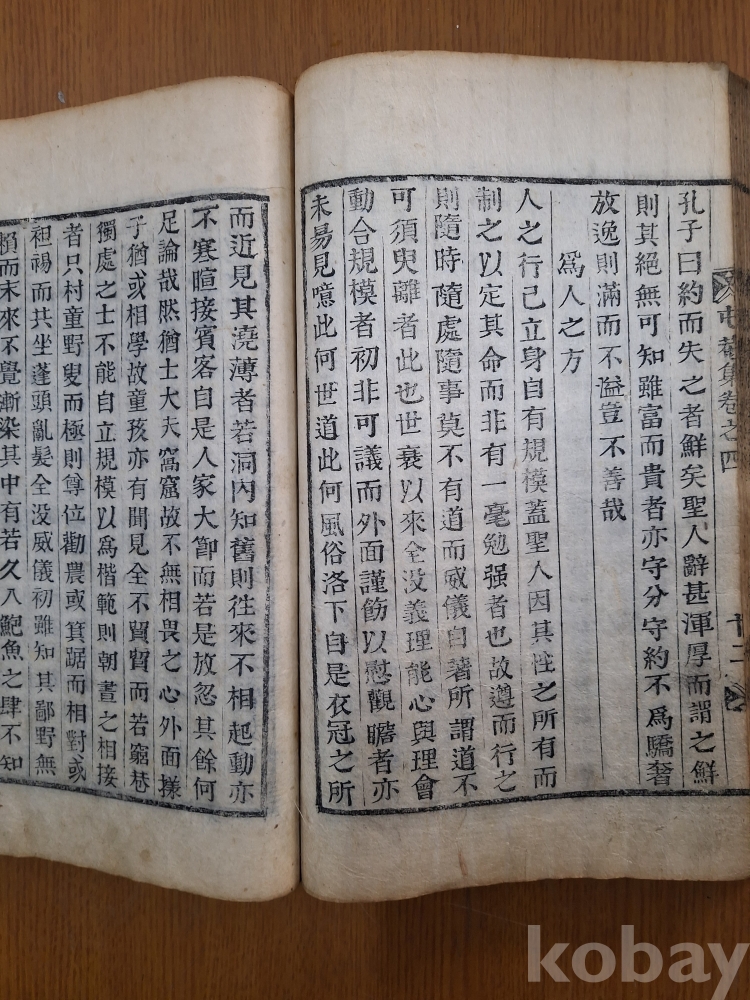 屯菴集卷之四
十二
孔子曰約而失之者鮮矣聖人辭甚渾厚而謂之鮮
則其絕無可知雖富而貴者亦守分守約不爲驕奢
放逸則滿而不溢豈不善哉
爲人之方
人之行己立身自有規模蓋聖人因其性之所有而
制之以定其命而非有一毫勉强者也故遵而行之
則隨時隨處隨事莫不有道而威儀自著所謂道不
可須臾離者此也世衰以來全没義理能心與理會
動合規模者初非可議而外面謹飭以慰觀瞻者亦
未易見噫此何世道此何風俗洛下自是衣冠之所
而近見其澆薄者若洞內知舊則徃來不相起動亦
不寒暄接賓客自是人家大節而若是放忽其餘何
足論哉然猶士大夫窩窟故不無相畏之心外面㨾
子猶或相學故童孩亦有聞見全不貿貿而若窮巷
獨處之士不能自立規模以爲楷範則朝晝之相接
者只村童野叟而極則尊位勸農或箕踞而相對或
袒裼而共坐蓬頭亂髮全没威儀初雖知其鄙野無
賴而末來不覺漸染其中有若久入鮑魚之肆不知
kobay